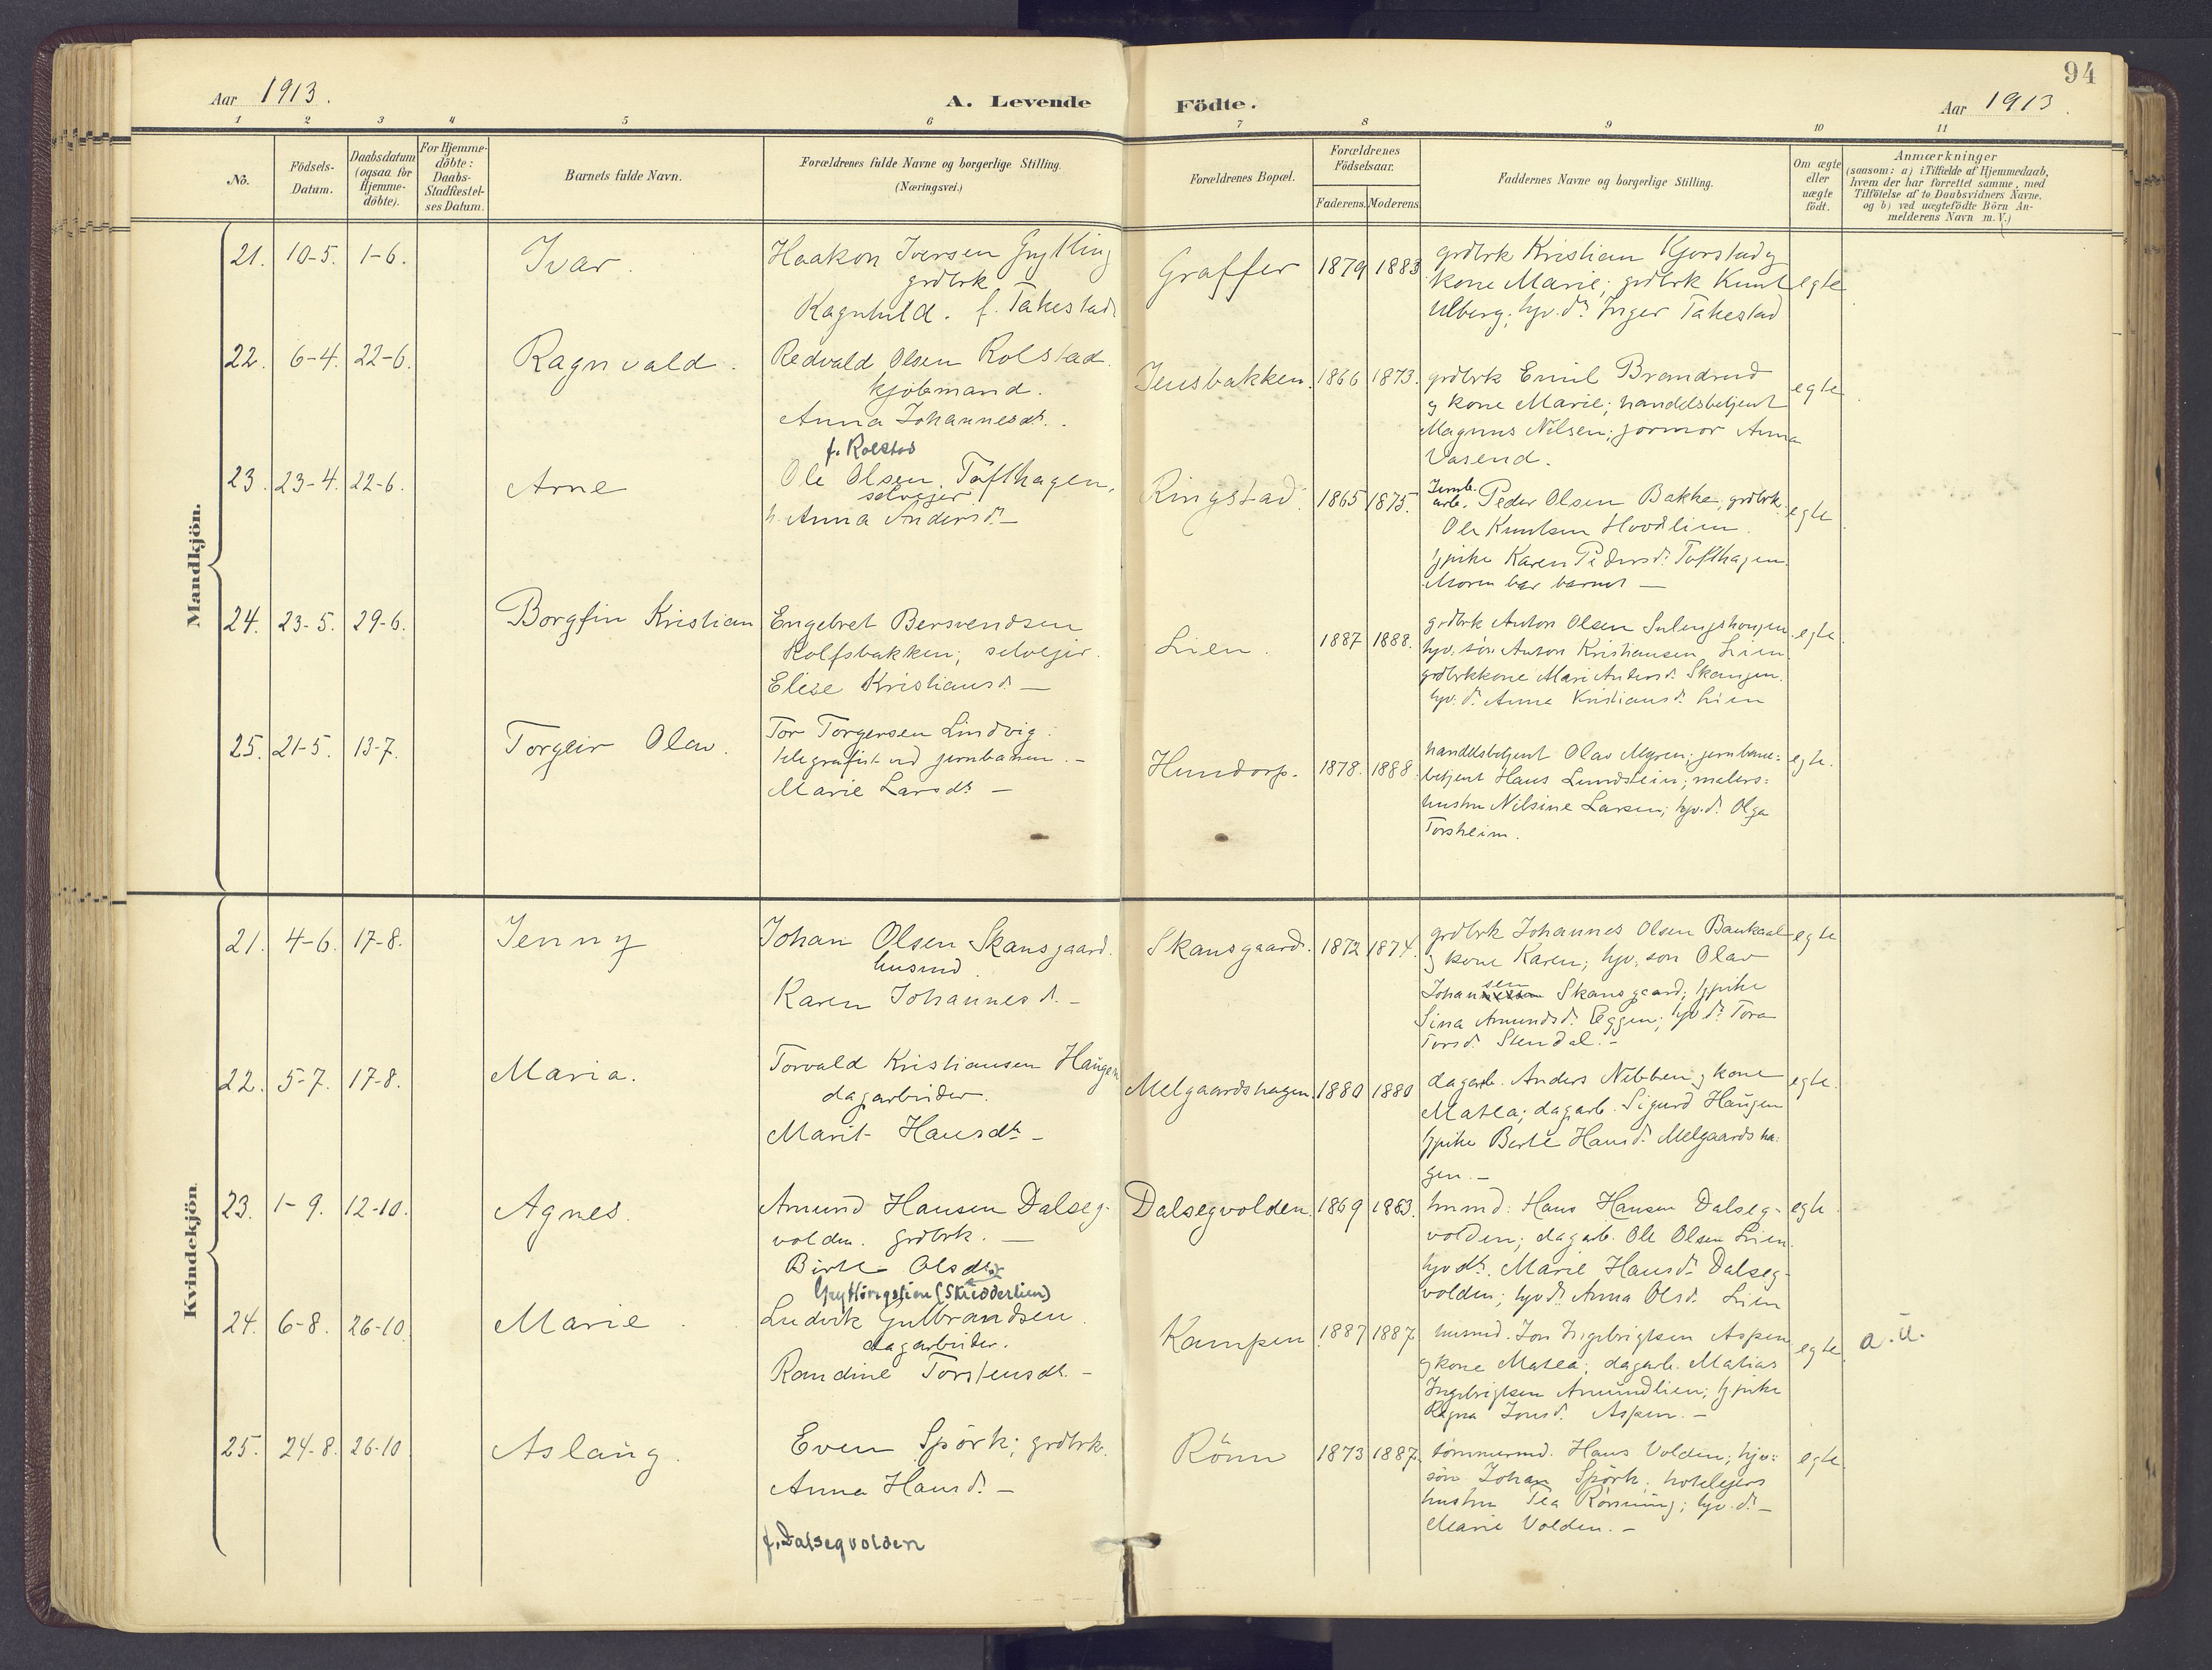 94
Aar 1913.
A. Levende Födte.
Aar 1913.
1 2 3 4 5 6 7 8 9 10 11
No.
Födsels-
Datum.
Daabsdatum
(ogsaa for
Hjemme-
döbte).
For Hjemme-
döbte:
Daabs-
Stadfæstel-
ses Datum.
Barnets fulde Navn.
Forældrenes fulde Navne og borgerlige Stilling.
(Næringsvei.)
Forældrenes Bopæl.
Forældrenes
Födselsaar.
Faderens. Moderens.
Faddernes Navne og borgerlige Stilling.
Om ægte
eller
uægte
födt.
Anmærkninger
(saasom: a) i Tilfælde af Hjemmedaab,
hvem der har forrettet samme, med
Tilföielse af to Daabsvidners Navne.
og b) ved uægtefödte Börn An-
melderens Navn m. V.)
Mandkjön.
21. 10-5. 1-6.
Ivar.
Haakon Iversen Grytting
grdbrk
Ragnhild. f. Takestad
Graffer
1879 1883
grdbrk Kristian Kjorstad og
kone Marie; grdbrk Knut
Ulberg; hjv. dr Inger Takestad
egte
22. 6-4. 22-6.
Ragnvald.
Redvald Olsen Rolstad.
kjöbmand.
Anna Johannesdr.
f. Rolstad
Jensbakken.
1866 1873.
grdbrk Emil Brandrud
og kone Marie; handelsbetjent
Magnus Nilsen; jormor Anna
Vasend.
egte
23. 23-4. 22-6.
Arne
Ole Olsen Tofthagen,
selvejer
h. Anna Andersdr. —
Ringstad.
1865 1875.
Jernb.
arb. Peder Olsen Bakke, grdbrk.
Ole Knutsen Hoodlien.
tjpike Karen Pedersdr. Tofthagen.
Moren bar barnet —
egte
24. 23-5. 29-6.
Borgfin Kristian
Engebret Bersvendsen
Rolfsbakken; selvejer.
Elise Kristiansdr. —
Lien.
1887 1888.
grdbrk Anton Olsen Sulengshaugen
hjv. sön Anton Kristiansen Lien.
grdbrkkone Mari Andersdr. Skaugen.
hjv. dr. Anna Kristiansdr. Lien
egte
25. 21-5. 13-7.
Torgeir Olav.
Tor Torgersen Lindvig.
telegrafist ved jernbanen. —
Marie Larsdr. —
Hundorp.
1878. 1888.
handelsbetjent Olav Myren; jernbane-
betjent Hans Lundstein; malers-
hustru Nilsine Larsen; hjv. dr. Olga
Torsheim.
egte.
Kvindekjön
21. 4-6. 17-8.
Jenny
Johan Olsen Skansgaard.
husmd.
Karen Johannesdr. —
Skansgaard.
1872 1874.
grdbrk Johannes Olsen Baukaal
og kone Karen; hjv. son Olav
Johansen Skansgaard; tjpike
Sina Amundsdr. Eggen; hjv dr. Tora
Torsdr. Stendal. —
egte
22. 5-7. 17-8.
Maria.
Torvald Kristiansen Haugen
dagarbeider.
Marit Hansdr. —
Melgaardshagen.
1880 1880
dagarb. Anders Nebben og kone
Matea; dagarb. Sigurd Haugen
tjpike Berte Hansdr. Melgaardsha-
gen. —
egte.
23. 1-9. 12-10.
Agnes.
Amund Hansen Dalseg-
volden. grdbrk. —
Birte Olsdr.
Gryttingslien (Skredderlien)
Dalsegvolden.
1869 1883.
husmd. Hans Hansen Dalseg-
volden; dagarb. Ole Olsen Lien.
hjv dr. Marie Hansdr. Dalseg-
volden; hjv dr. Anna Olsdr. Lien
egte.
24. 6-8. 26-10.
Marie.
Ludvik Gulbrandsen.
dagarbeider.
Randine Torstensdr. —
Kampen
1887 1887
husmd. Jon Ingebrigtsen Aspen
og kone Matea; dagarb. Matias
Ingebrigtsen Amundlien; tjpike
Ragna Jonsdr. Aspen. —
egte
a.u.
25. 24-8. 26-10
Aslaug.
Even Spörk; grdbrk.
Anna Hansdr. —
f. Dalsegvolden
Rönn
1873 1887.
tömmermd. Hans Volden; hjv.
sön Johan Spörk; hotelejers
hustru Tea Rönning; hjv. dr. —
Marie Volden. —
egte.